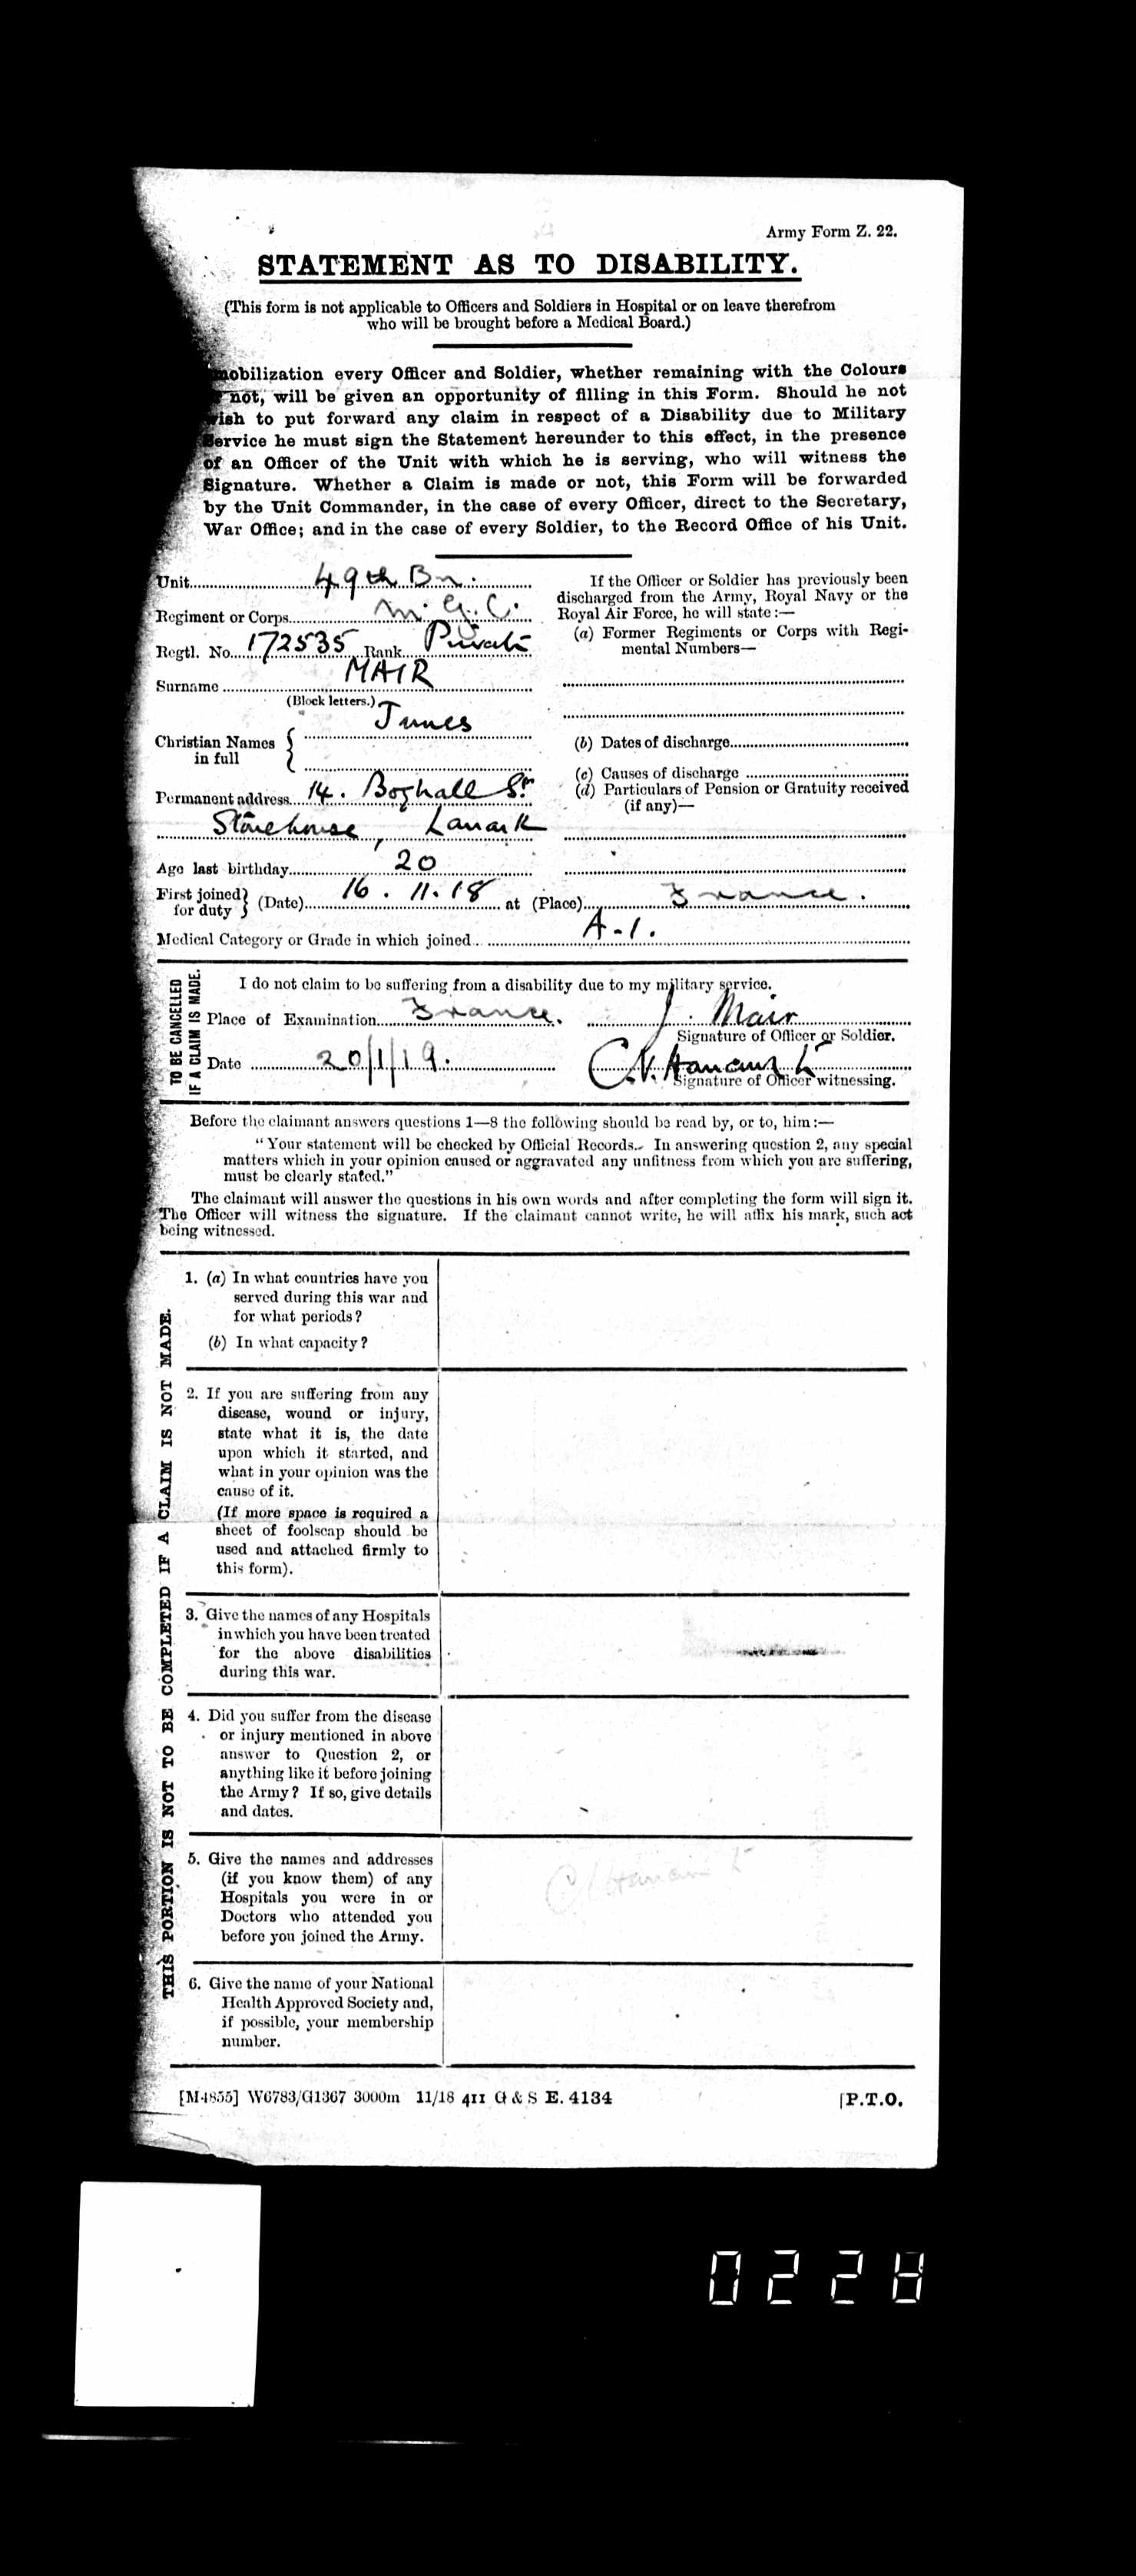 Army Form Z. 22.
STATEMENT AS TO DISABILITY.
(This form is not applicable to Officers and Soldiers in Hospital or on leave therefrom
who will be brought before a Medical Board.)
mobilization every Officer and Soldier, whether remaining with the Colours
not, will be given an opportunity of filling in this Form. Should he not
wish to put forward any claim in respect of a Disability due to Military
Service he must sign the Statement hereunder to this effect, in the presence
of an Officer of the Unit with which he is serving, who will witness the
Signature. Whether a Claim is made or not, this Form will be forwarded
by the Unit Commander, in the case of every Officer, direct to the Secretary,
War Office; and in the case of every Soldier, to the Record Office of his Unit.
Unit 49th Bn.
Regiment or Corps M. G. C.
Regtl. No. 172535 Rank Private
Surname MAIR
(Block letters.)
Christian Names in full James
Permanent address 14. Boghall St
Stonehouse, Lanark
Age last birthday 20
If the Officer or Soldier has previously been
discharged from the Army, Royal Navy or the
Royal Air Force, he will state:—
(a) Former Regiments or Corps with Regi-
mental Numbers—
(b) Dates of discharge
(c) Causes of discharge
(d) Particulars of Pension or Gratuity received
(if any)—
First joined for duty (Date) 16.11.18 at (Place) France.
Medical Category or Grade in which joined A.1.
TO BE CANCELLED
IF A CLAIM IS MADE.
I do not claim to be suffering from a disability due to my military service.
Place of Examination France. J. Mair
Signature of Officer or Soldier.
Date 20/1/19. C.V.
Signature of Officer witnessing.
Before the claimant answers questions 1—8 the following should be read by, or to, him:—
"Your statement will be checked by Official Records. In answering question 2, any special
matters which in your opinion caused or aggravated any unfitness from which you are suffering,
must be clearly stated."
The claimant will answer the questions in his own words and after completing the form will sign it.
The Officer will witness the signature. If the claimant cannot write, he will affix his mark, such act
being witnessed.
THIS PORTION IS NOT TO BE COMPLETED IF A CLAIM IS NOT MADE.
1. (a) In what countries have you
served during this war and
for what periods?
(b) In what capacity?
2. If you are suffering from any
disease, wound or injury,
state what it is, the date
upon which it started, and
what in your opinion was the
cause of it.
(If more space is required a
sheet of foolscap should be
used and attached firmly to
this form).
3. Give the names of any Hospitals
in which you have been treated
for the above disabilities
during this war.
4. Did you suffer from the disease
or injury mentioned in above
answer to Question 2, or
anything like it before joining
the Army? If so, give details
and dates.
5. Give the names and addresses
(if you know them) of any
Hospitals you were in or
Doctors who attended you
before you joined the Army.
6. Give the name of your National
Health Approved Society and,
if possible, your membership
number.
[M4855] W6783/G1367 3000m 11/18 411 G & S E. 4134 [P.T.O.
0228